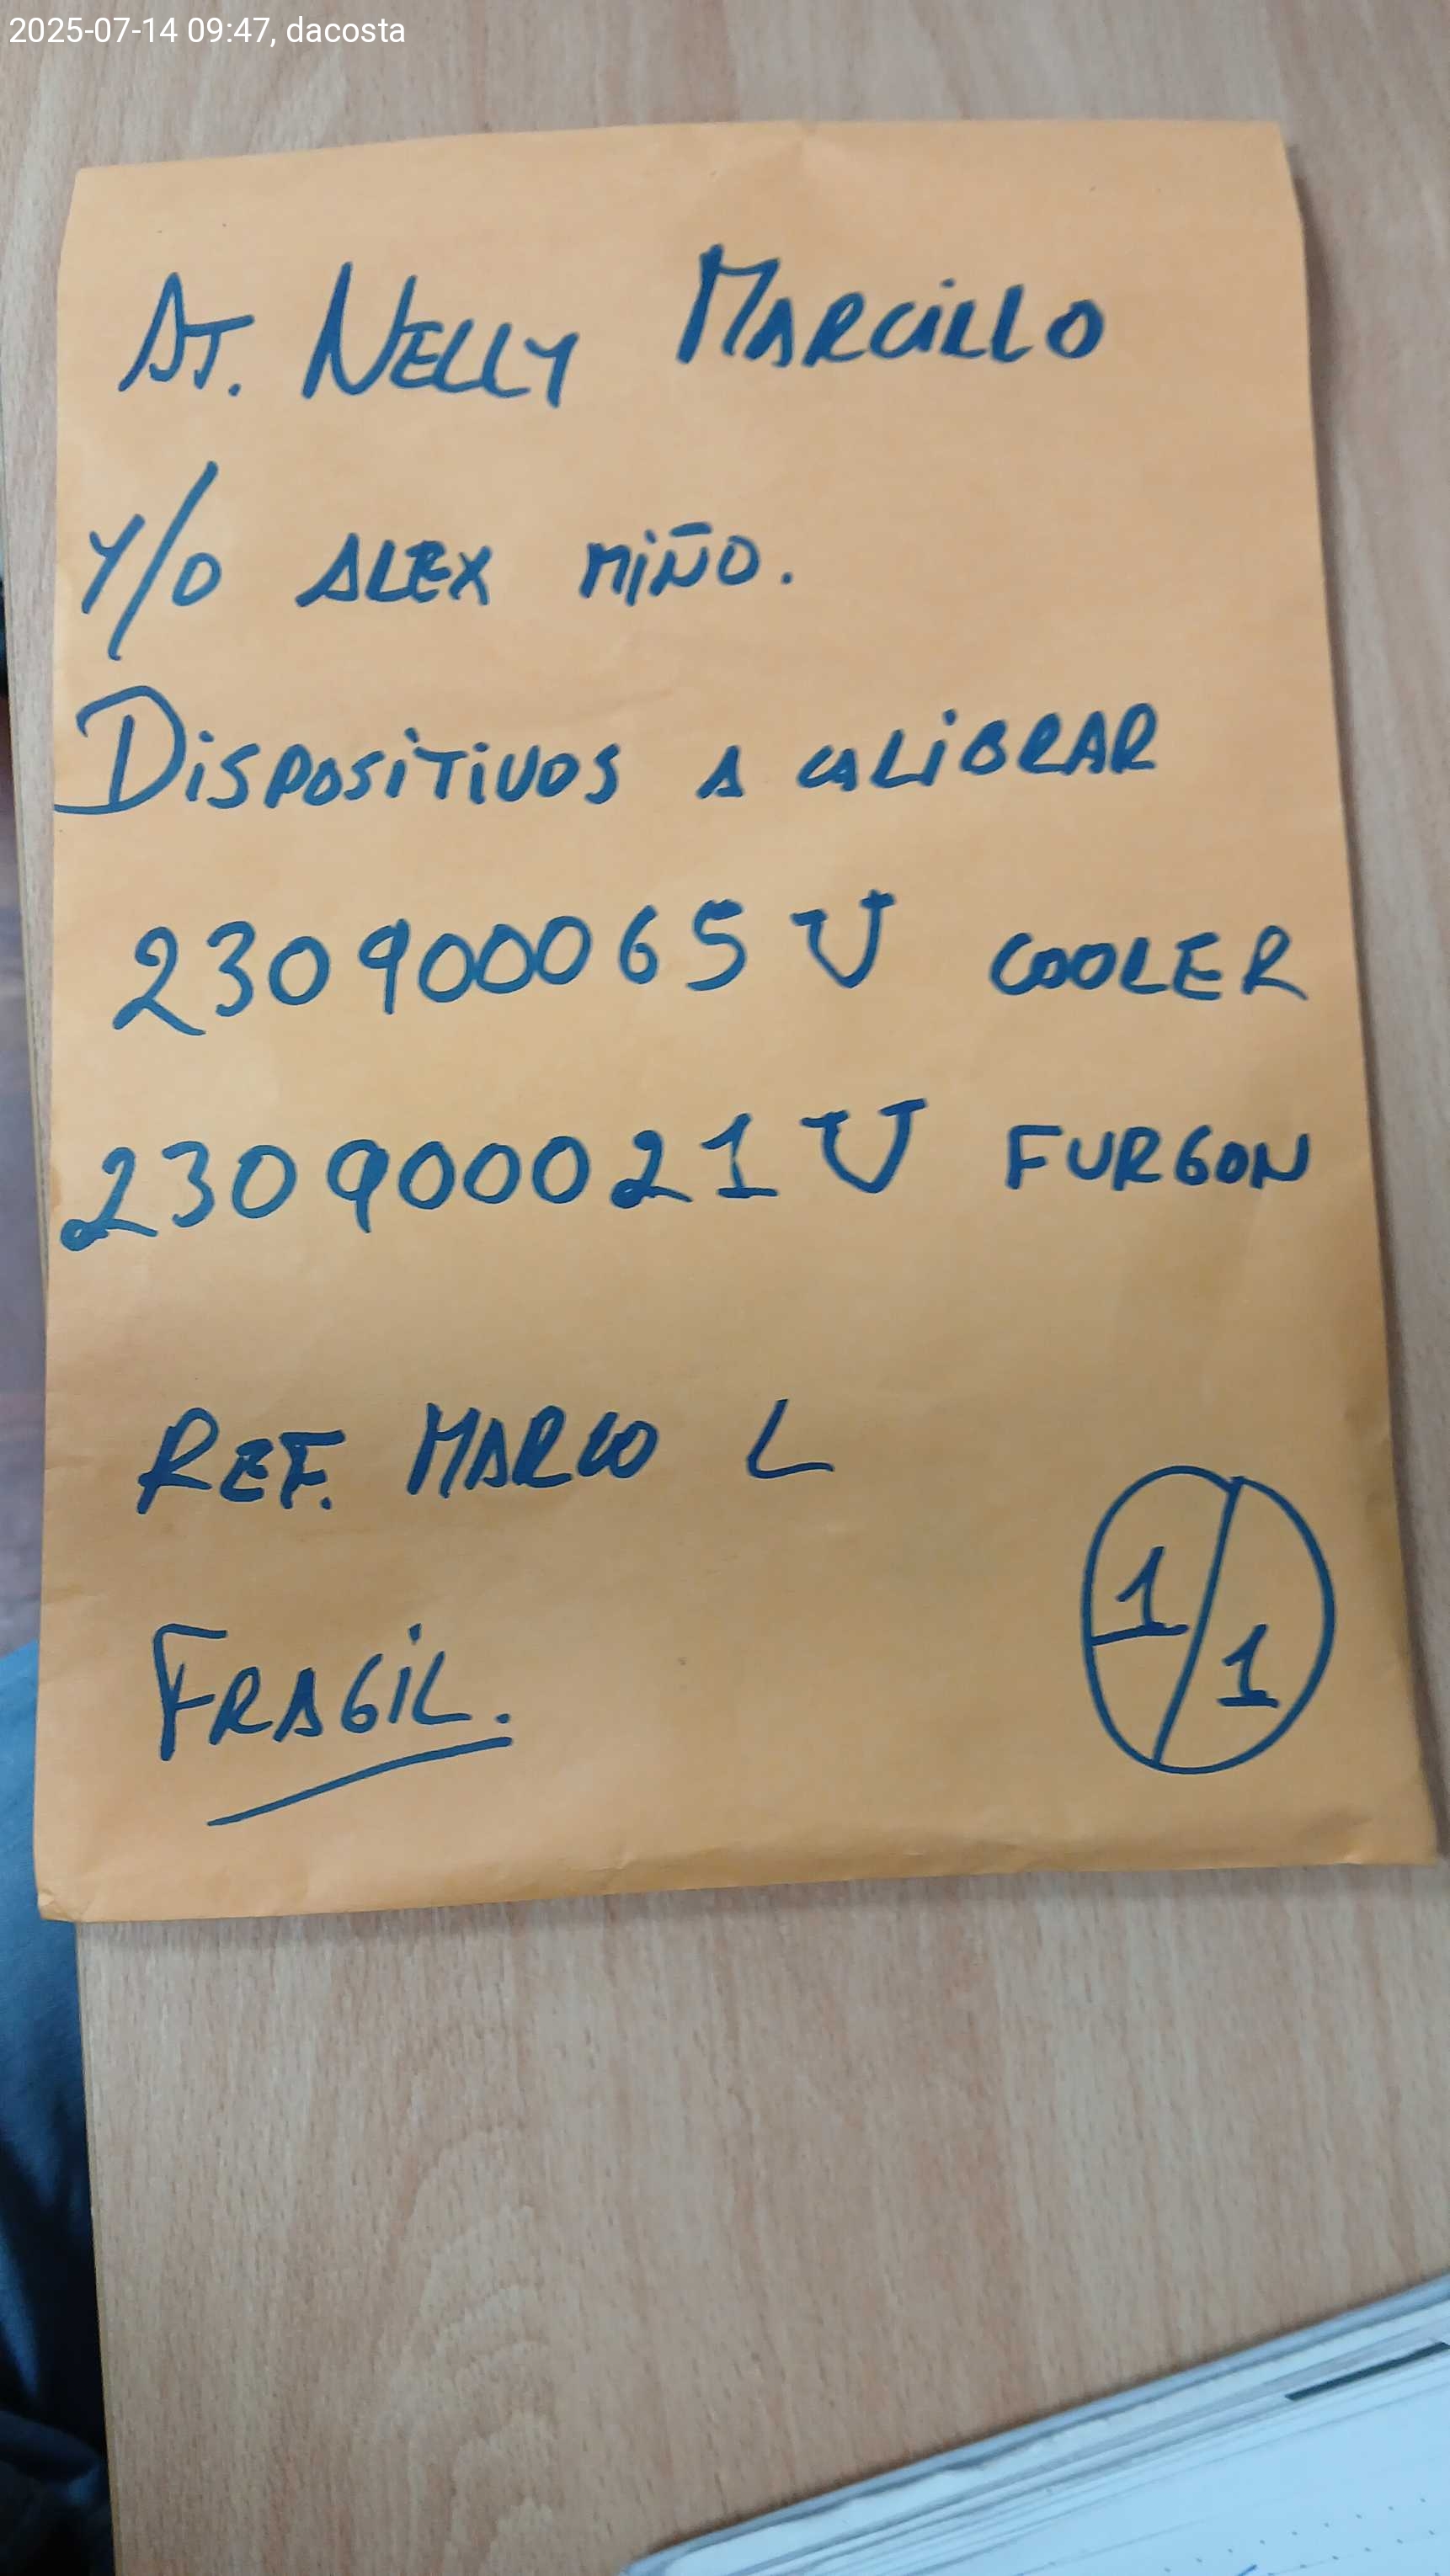 2025-07-14 09:47, dacosta
AT. NELLY MARCILLO
Y/O ALEX MIÑO.
DISPOSITIVOS A CALIBRAR
230900065 U COOLER
230900021 U FURGON
REF. MARCO L
FRAGIL.
1/1